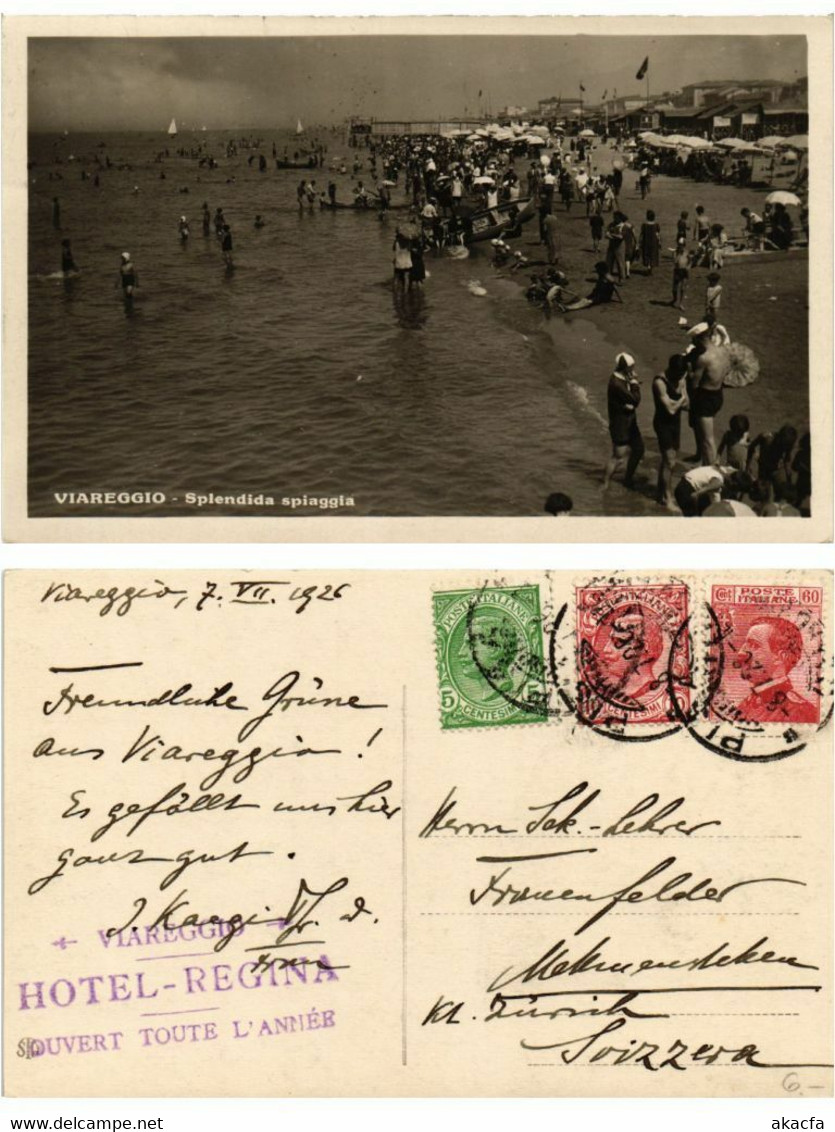 VIAREGGIO - Splendida spiaggia
Viareggio, 7. VII. 1926
Freundliche Grüne
aus Viareggio!
Es gefällt uns hier
ganz gut.
VIAREGGIO
HOTEL-REGINA
OUVERT TOUTE L'ANNÉE
POSTE ITALIANE
5 5
CENTESIMI
CENTESIMI
POSTE
ITALIANE
60
Herrn Sek.-Lehrer
Frauenfelder
Kt. Zürich
Svizzera
6.-
www.delcampe.net
akacfa